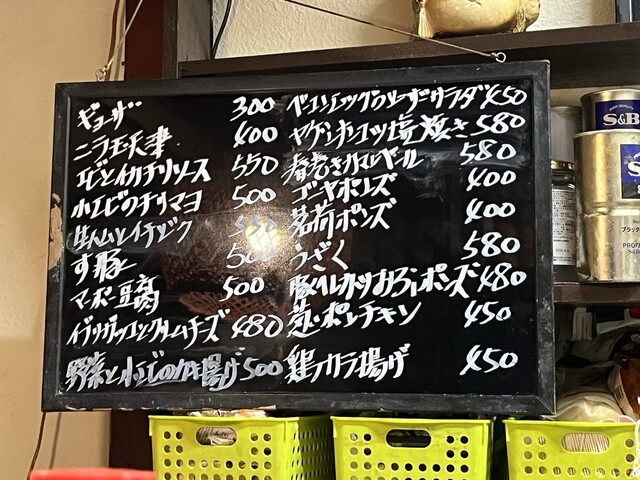 ギョーザ 300
ニラ玉天津 400
エビとイカチリソース 550
小エビのチリマヨ 500
生ハムとイチジク
す豚 500
マーボー豆腐 500
イブリガッコとクリームチーズ 480
野菜と小エビのかき揚げ 500
サラダ 450
ヤゲンナンコツ塩焼き 580
春巻き 580
ゴーヤポンズ 400
茗荷ポンズ 400
うざく 580
豚ヒレカツおろしポンズ 480
ポンチキン 450
鶏カラ揚げ 450
S&B
S&B